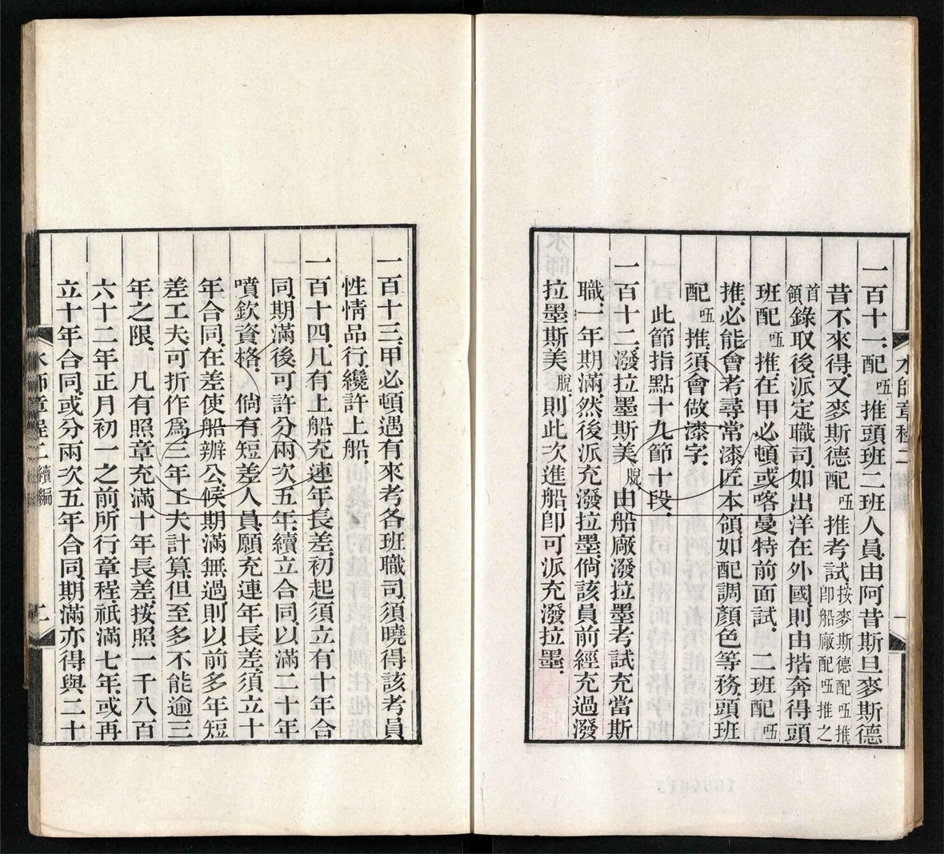 一百十一、配㕶推頭班二班人員、由阿昔斯旦麥斯德
昔不來得、又麥斯德配㕶推考試按麥斯德配㕶推即船廠配㕶推之
首領錄取後、派定職司、如出洋在外國則由揩奔得頭
班配㕶推在甲必頓或喀曼特前面試、二班配㕶
推、必能會考尋常漆匠本領、如配調顏色等務、頭班
配㕶推、須會做漆字、
此節指點十九節十段、
一百十二、潑拉墨斯美脫、由船廠潑拉墨考試充當斯
職、一年期滿然後派充潑拉墨、倘該員前經充過潑
拉墨斯美脫、則此次進船即可派充潑拉墨、
水師章程二續編
一
一百十三、甲必頓遇有來考各班職司、須曉得該考員
性情品行、纔許上船、
一百十四、凡有上船充連年長差、初起須立有十年合
同、期滿後可許分兩次五年、續立合同、以滿二十年
噴欽資格、倘有短差人員、願充連年長差、須立十
年合同、在差使船辦公、候期滿無過則以前多年短
差工夫可折作爲三年工夫計算、但至多不能逾三
年之限、凡有照章充滿十年長差、按照一千八百
六十二年正月初一之前、所行章程、祇滿七年、或再
立十年合同、或分兩次五年合同、期滿亦得與二十
水師章程二續編
二